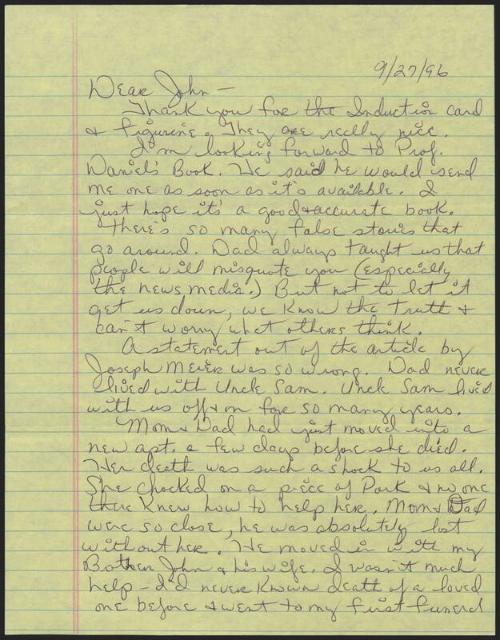 9/27/96
Dear John —
Thank you for the Induction card
& figurine. They are really nice.
I'm looking forward to Prof.
Daniel's Book. He said he would send
me one as soon as it's available. I
just hope it's a good & accurate book.
There's so many false stories that
go around. Dad always taught us that
people will misquote you (especially
the news media.) But not to let it
get us down, we know the truth &
can't worry what others think.
A statement out of the article by
Joseph Meier was so wrong. Dad never
lived with Uncle Sam. Uncle Sam lived
with us off & on for so many years.
Mom & Dad had just moved into a
new apt. a few days before she died.
Her death was such a shock to us all.
She chocked on a piece of Pork & no one
there knew how to help her. Mom & Dad
were so close, he was absolutely lost
without her. He moved in with my
Brother John & his wife. I wasn't much
help — I'd never known death of a loved
one before & went to my first funeral